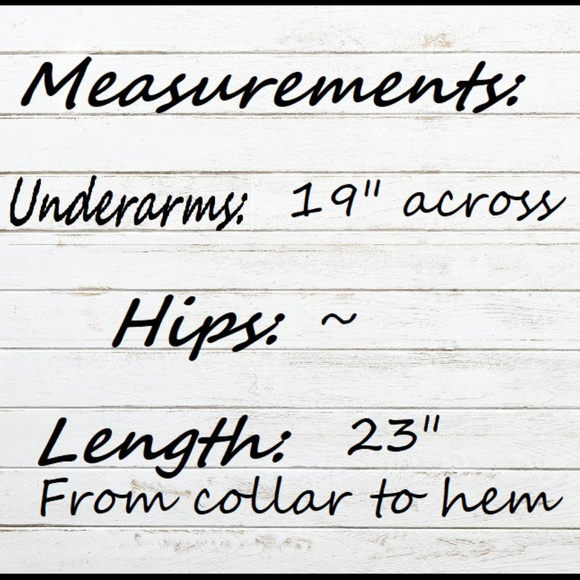 Measurements:
Underarms: 19" across
Hips: ~
Length: 23"
From collar to hem